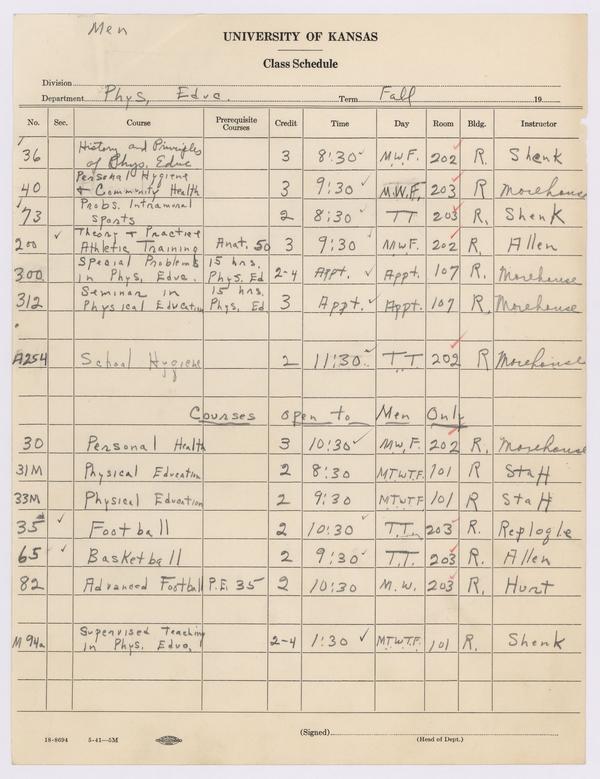 Men
UNIVERSITY OF KANSAS
Class Schedule
Division
Department Phys. Educ. Term Fall 19
No. Sec. Course Prerequisite Courses Credit Time Day Room Bldg. Instructor
36 History and Principles of Phys. Educ 3 8:30 M.W.F. 202 R. Shenk
40 Personal Hygiene + Community Health 3 9:30 M.W.F. 203 R Morehouse
73 Probs. Intramural Sports 2 8:30 TT 203 R. Shenk
200 Theory + Practice Athletic Training Anat. 50 3 9:30 MWF. 202 R. Allen
300 Special Problems in Phys. Educ. 15 hrs. Phys. Ed 2-4 Appt. Appt. 107 R. Morehouse
312 Seminar in Physical Education 15 hrs. Phys. Ed 3 Appt. Appt. 107 R. Morehouse
A254 School Hygiene 2 11:30 T.T. 202 R Morehouse
Courses open to Men Only
30 Personal Health 3 10:30 M.W.F. 202 R. Morehouse
31M Physical Education 2 8:30 MTWTF. 101 R Staff
33M Physical Education 2 9:30 MTWTF 101 R Staff
35 Football 2 10:30 T.T. 203 R. Replogle
65 Basketball 2 9:30 T.T. 203 R. Allen
82 Advanced Football P.E. 35 2 10:30 M.W. 203 R. Hunt
M 94a Supervised Teaching in Phys. Educ. 2-4 1:30 MTWTF. 101 R. Shenk
(Signed)
18-8694 5-41—5M (Head of Dept.)